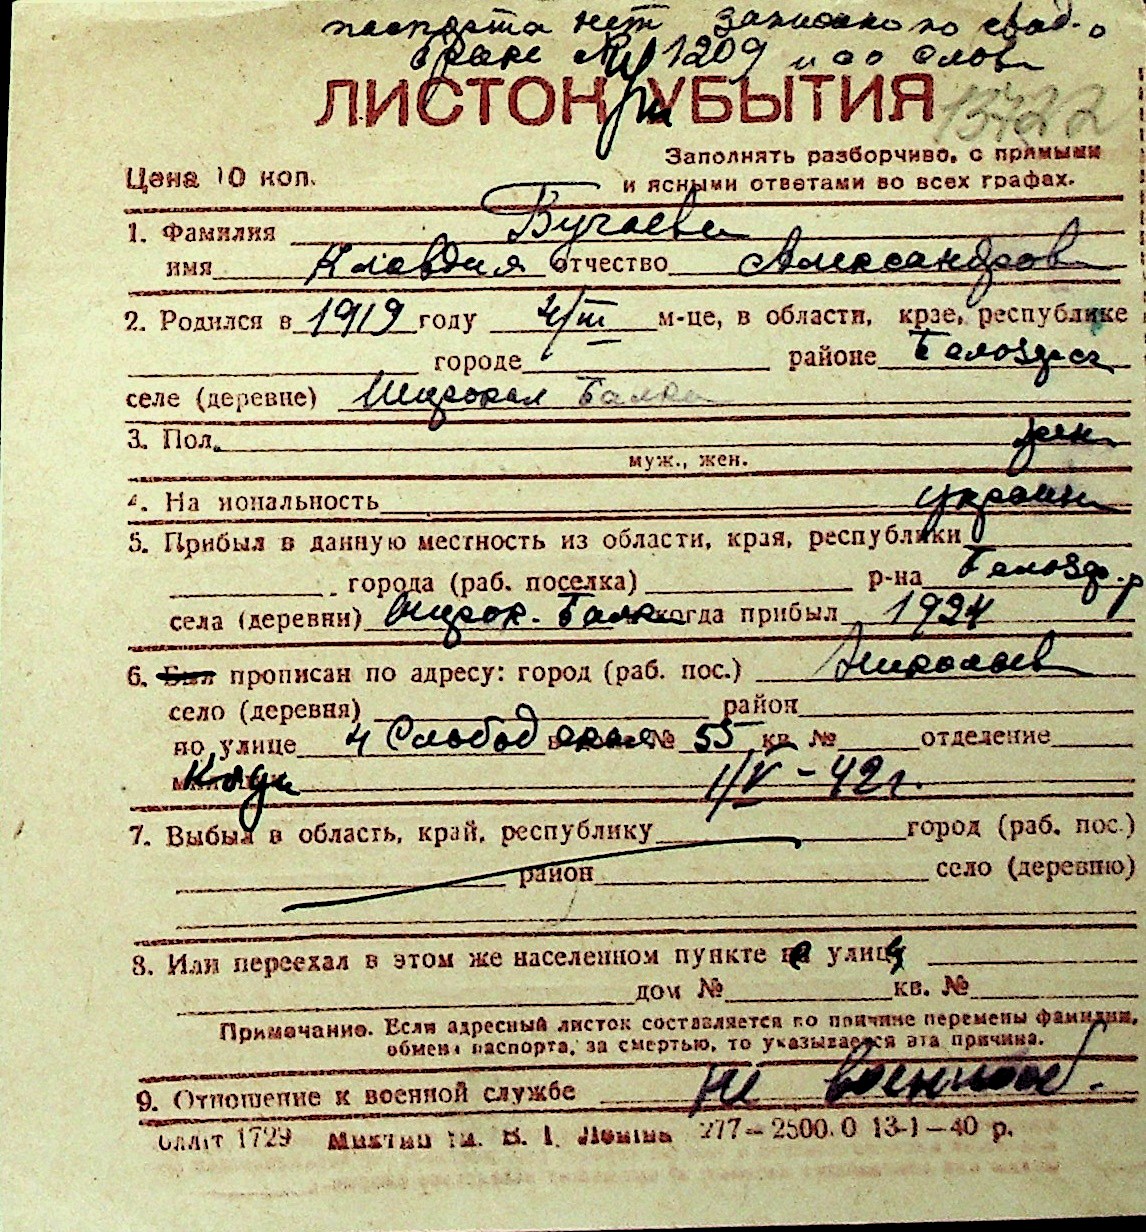 паспорта нет записано по свид-о
браке № 1209 и со слов
ЛИСТОК УБЫТИЯ
13722
Цена 10 коп.
Заполнять разборчиво, с прямыми
и ясными ответами во всех графах.
1. Фамилия Бугаева
имя Клавдия отчество Александров
2. Родился в 1919 году 4/III м-це, в области, крае, республике
городе районе Белозерск
селе (деревне) Широкая Балка
3. Пол жен
муж., жен.
4. На иональность украин
5. Прибыл в данную местность из области, края, республики
города (раб. поселка) р-на Белозер. р
села (деревни) Широк. Балка когда прибыл 1924
6. Был прописан по адресу: город (раб. пос.) Николаев
село (деревня) район
по улице 4 Слободская № 55 кв. № отделение
1/V-42 г.
7. Выбыл в область, край, республику город (раб. пос.)
район село (деревню)
8. Или переехал в этом же населенном пункте улицу
дом № кв. №
Примечание. Если адресный листок составляется по причине перемены фамилии,
обмена паспорта, за смертью, то указывается эта причина.
9. Отношение к военной службе не военнооб.
1729 ім. В. І. Леніна 277—2500.0 13-1—40 р.